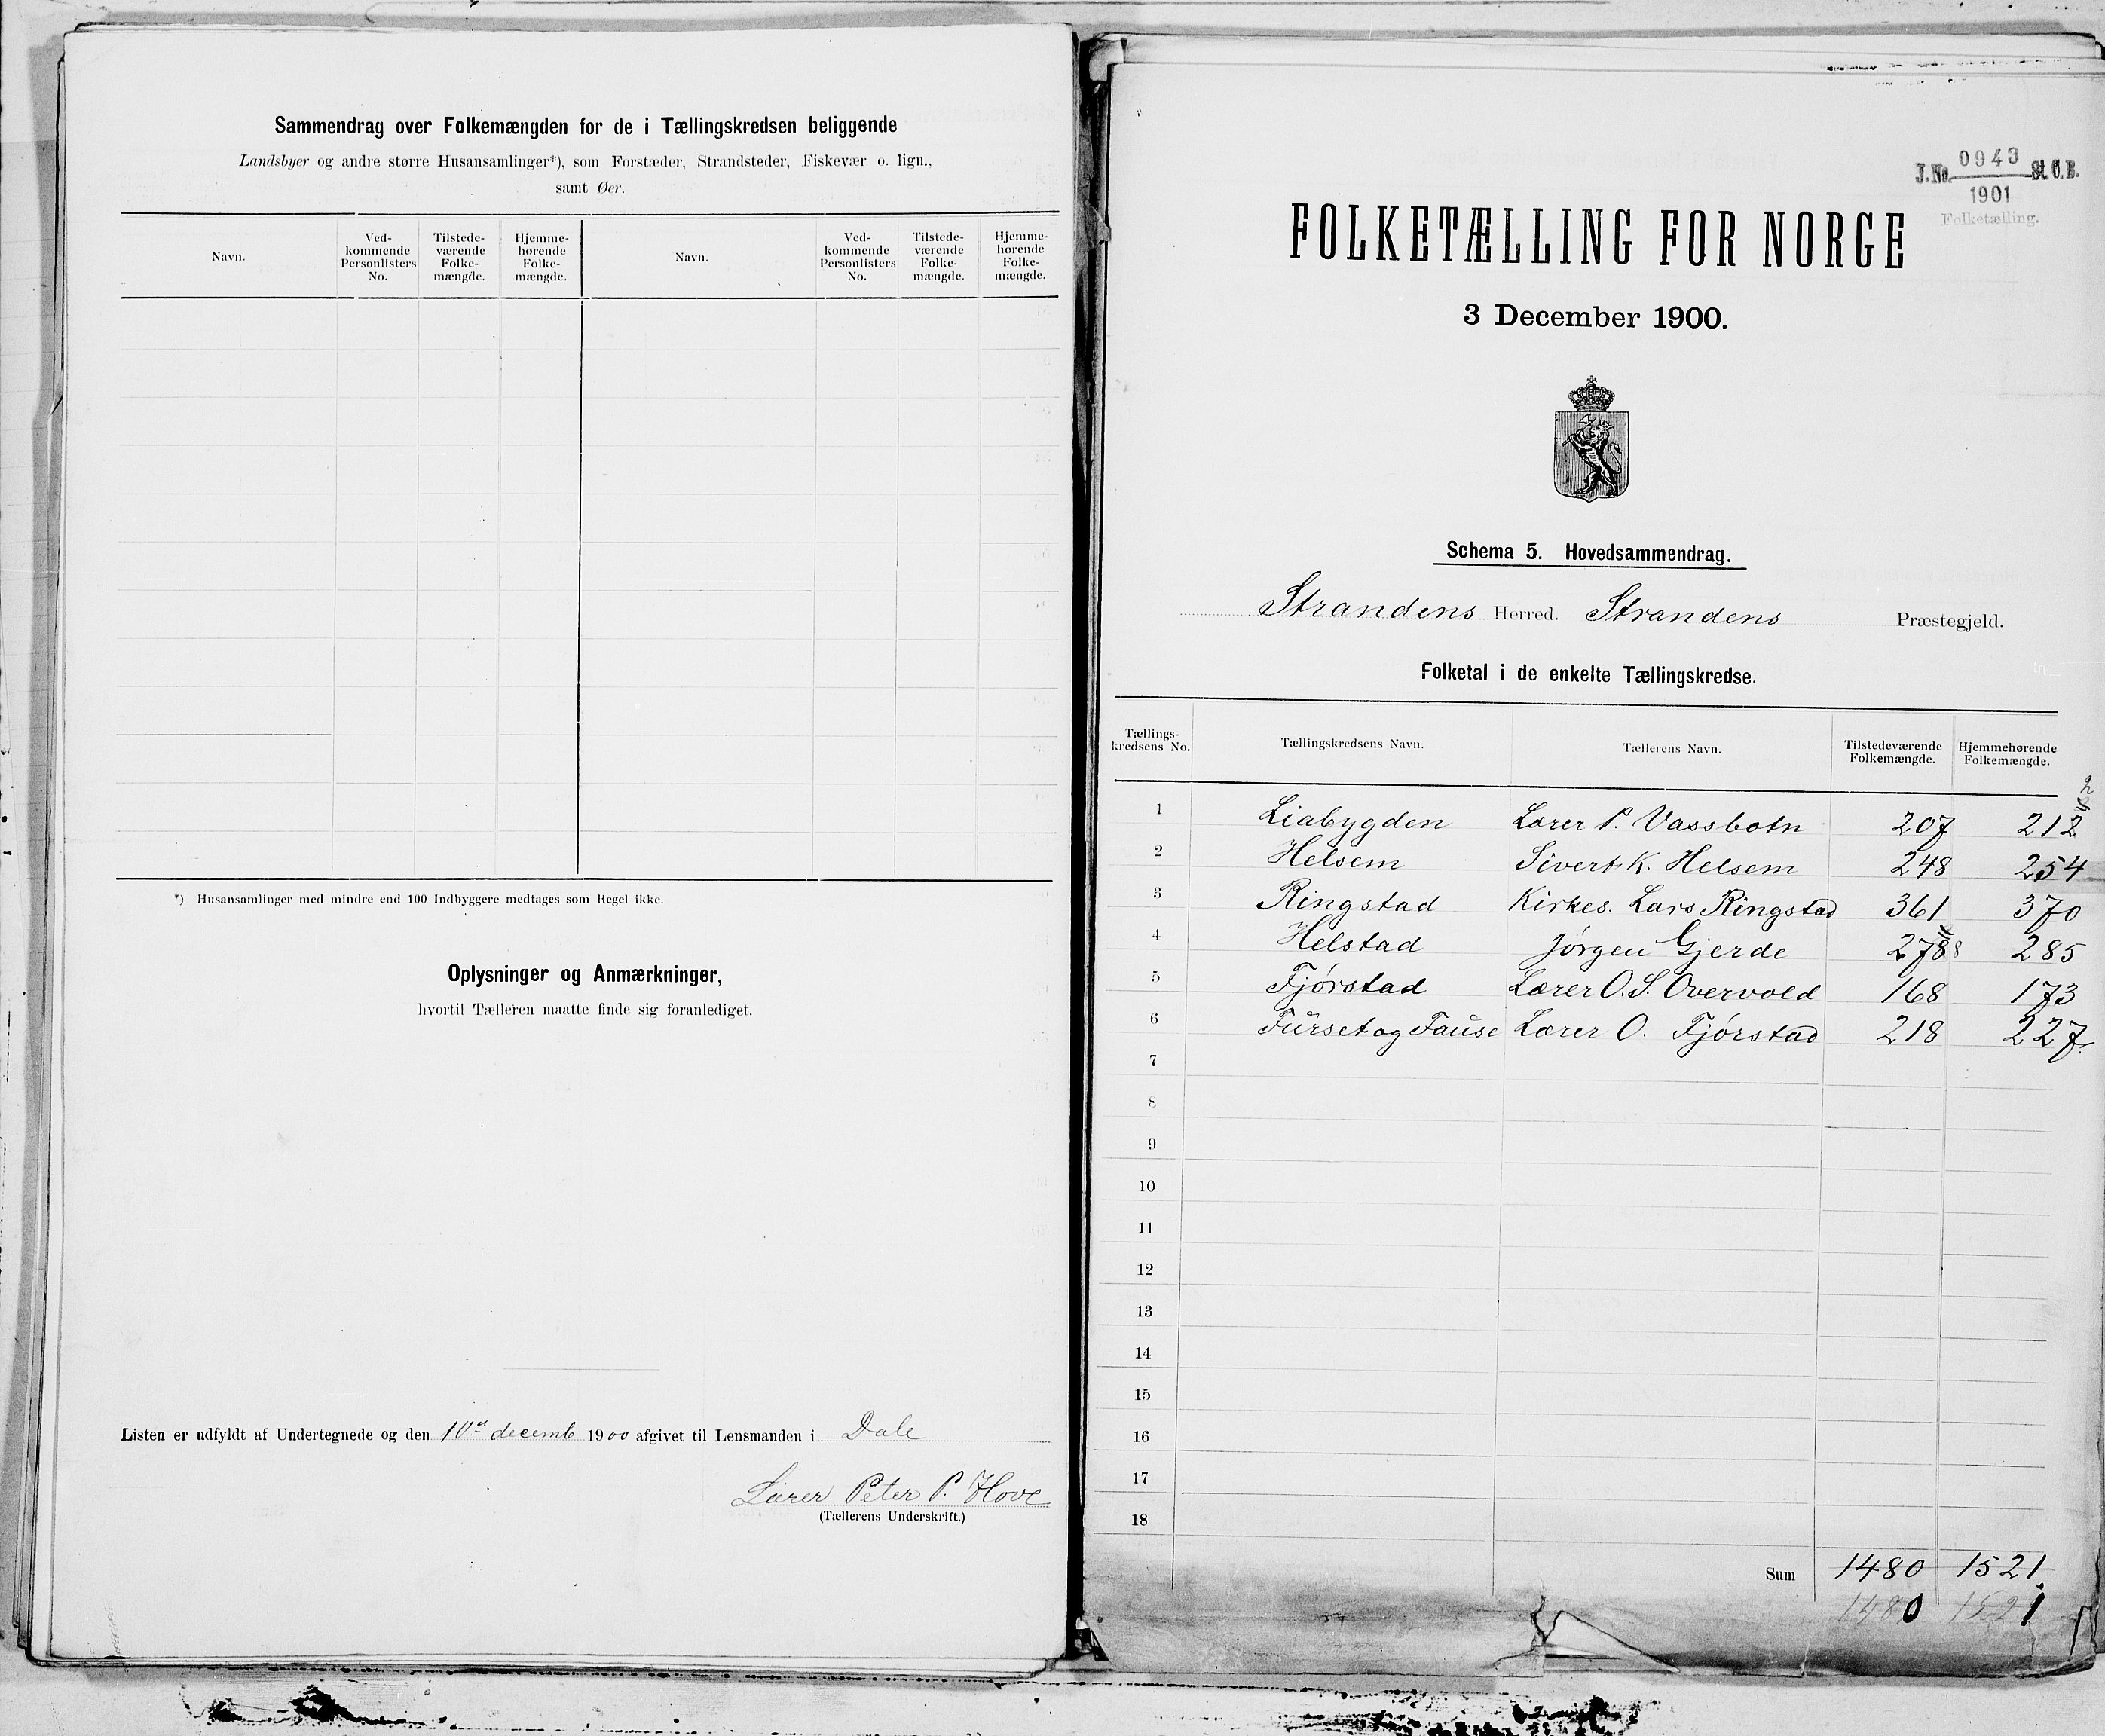 Sammendrag over Folkemængden for de i Tællingskredsen beliggende
Landsbyer og andre større Husansamlinger*), som Forstæder, Strandsteder, Fiskevær o. lign.,
samt Øer.
Navn. Ved-kommende Personlisters No. Tilstede-værende Folke-mængde. Hjemme-hørende Folke-mængde. Navn. Ved-kommende Personlisters No. Tilstede-værende Folke-mængde. Hjemme-hørende Folke-mængde.
*) Husansamlinger med mindre end 100 Indbyggere medtages som Regel ikke.
Oplysninger og Anmærkninger,
hvortil Tælleren maatte finde sig foranlediget.
Listen er udfyldt af Undertegnede og den 10de decemb 1900 afgivet til Lensmanden i Dale
Lærer Peter P. Hove
(Tællerens Underskrift.)
J. No. 0943 St. C. B.
1901
Folketælling.
FOLKETÆLLING FOR NORGE
3 December 1900.
Schema 5. Hovedsammendrag.
Strandens Herred. Strandens Præstegjeld.
Folketal i de enkelte Tællingskredse.
Tællings-kredsens No. Tællingskredsens Navn. Tællerens Navn. Tilstedeværende Folkemængde. Hjemmehørende Folkemængde.
1 Liabygden Lærer P. Vassbotn 207 212
2 Helsem Sivert K. Helsem 248 254
3 Ringstad Kirkes. Lars Ringstad 361 370
4 Helstad Jørgen Gjerde 278 285
5 Fjørstad Lærer O. S. Overvold 168 173
6 Furset og Fause Lærer O. Fjørstad 218 227.
7
8
9
10
11
12
13
14
15
16
17
18
Sum 1480 1521.
1480 1521